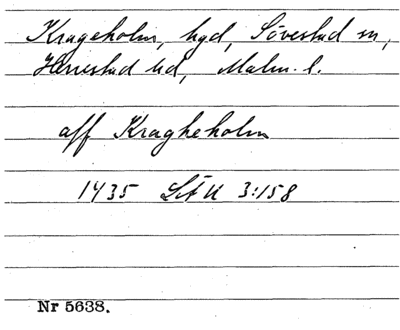 Krageholm, hgd, Sövestad sn,
Herrestad hd, Malm. l.
aff Kragheholm
1435 LÄU 3:158
Nr 5638.